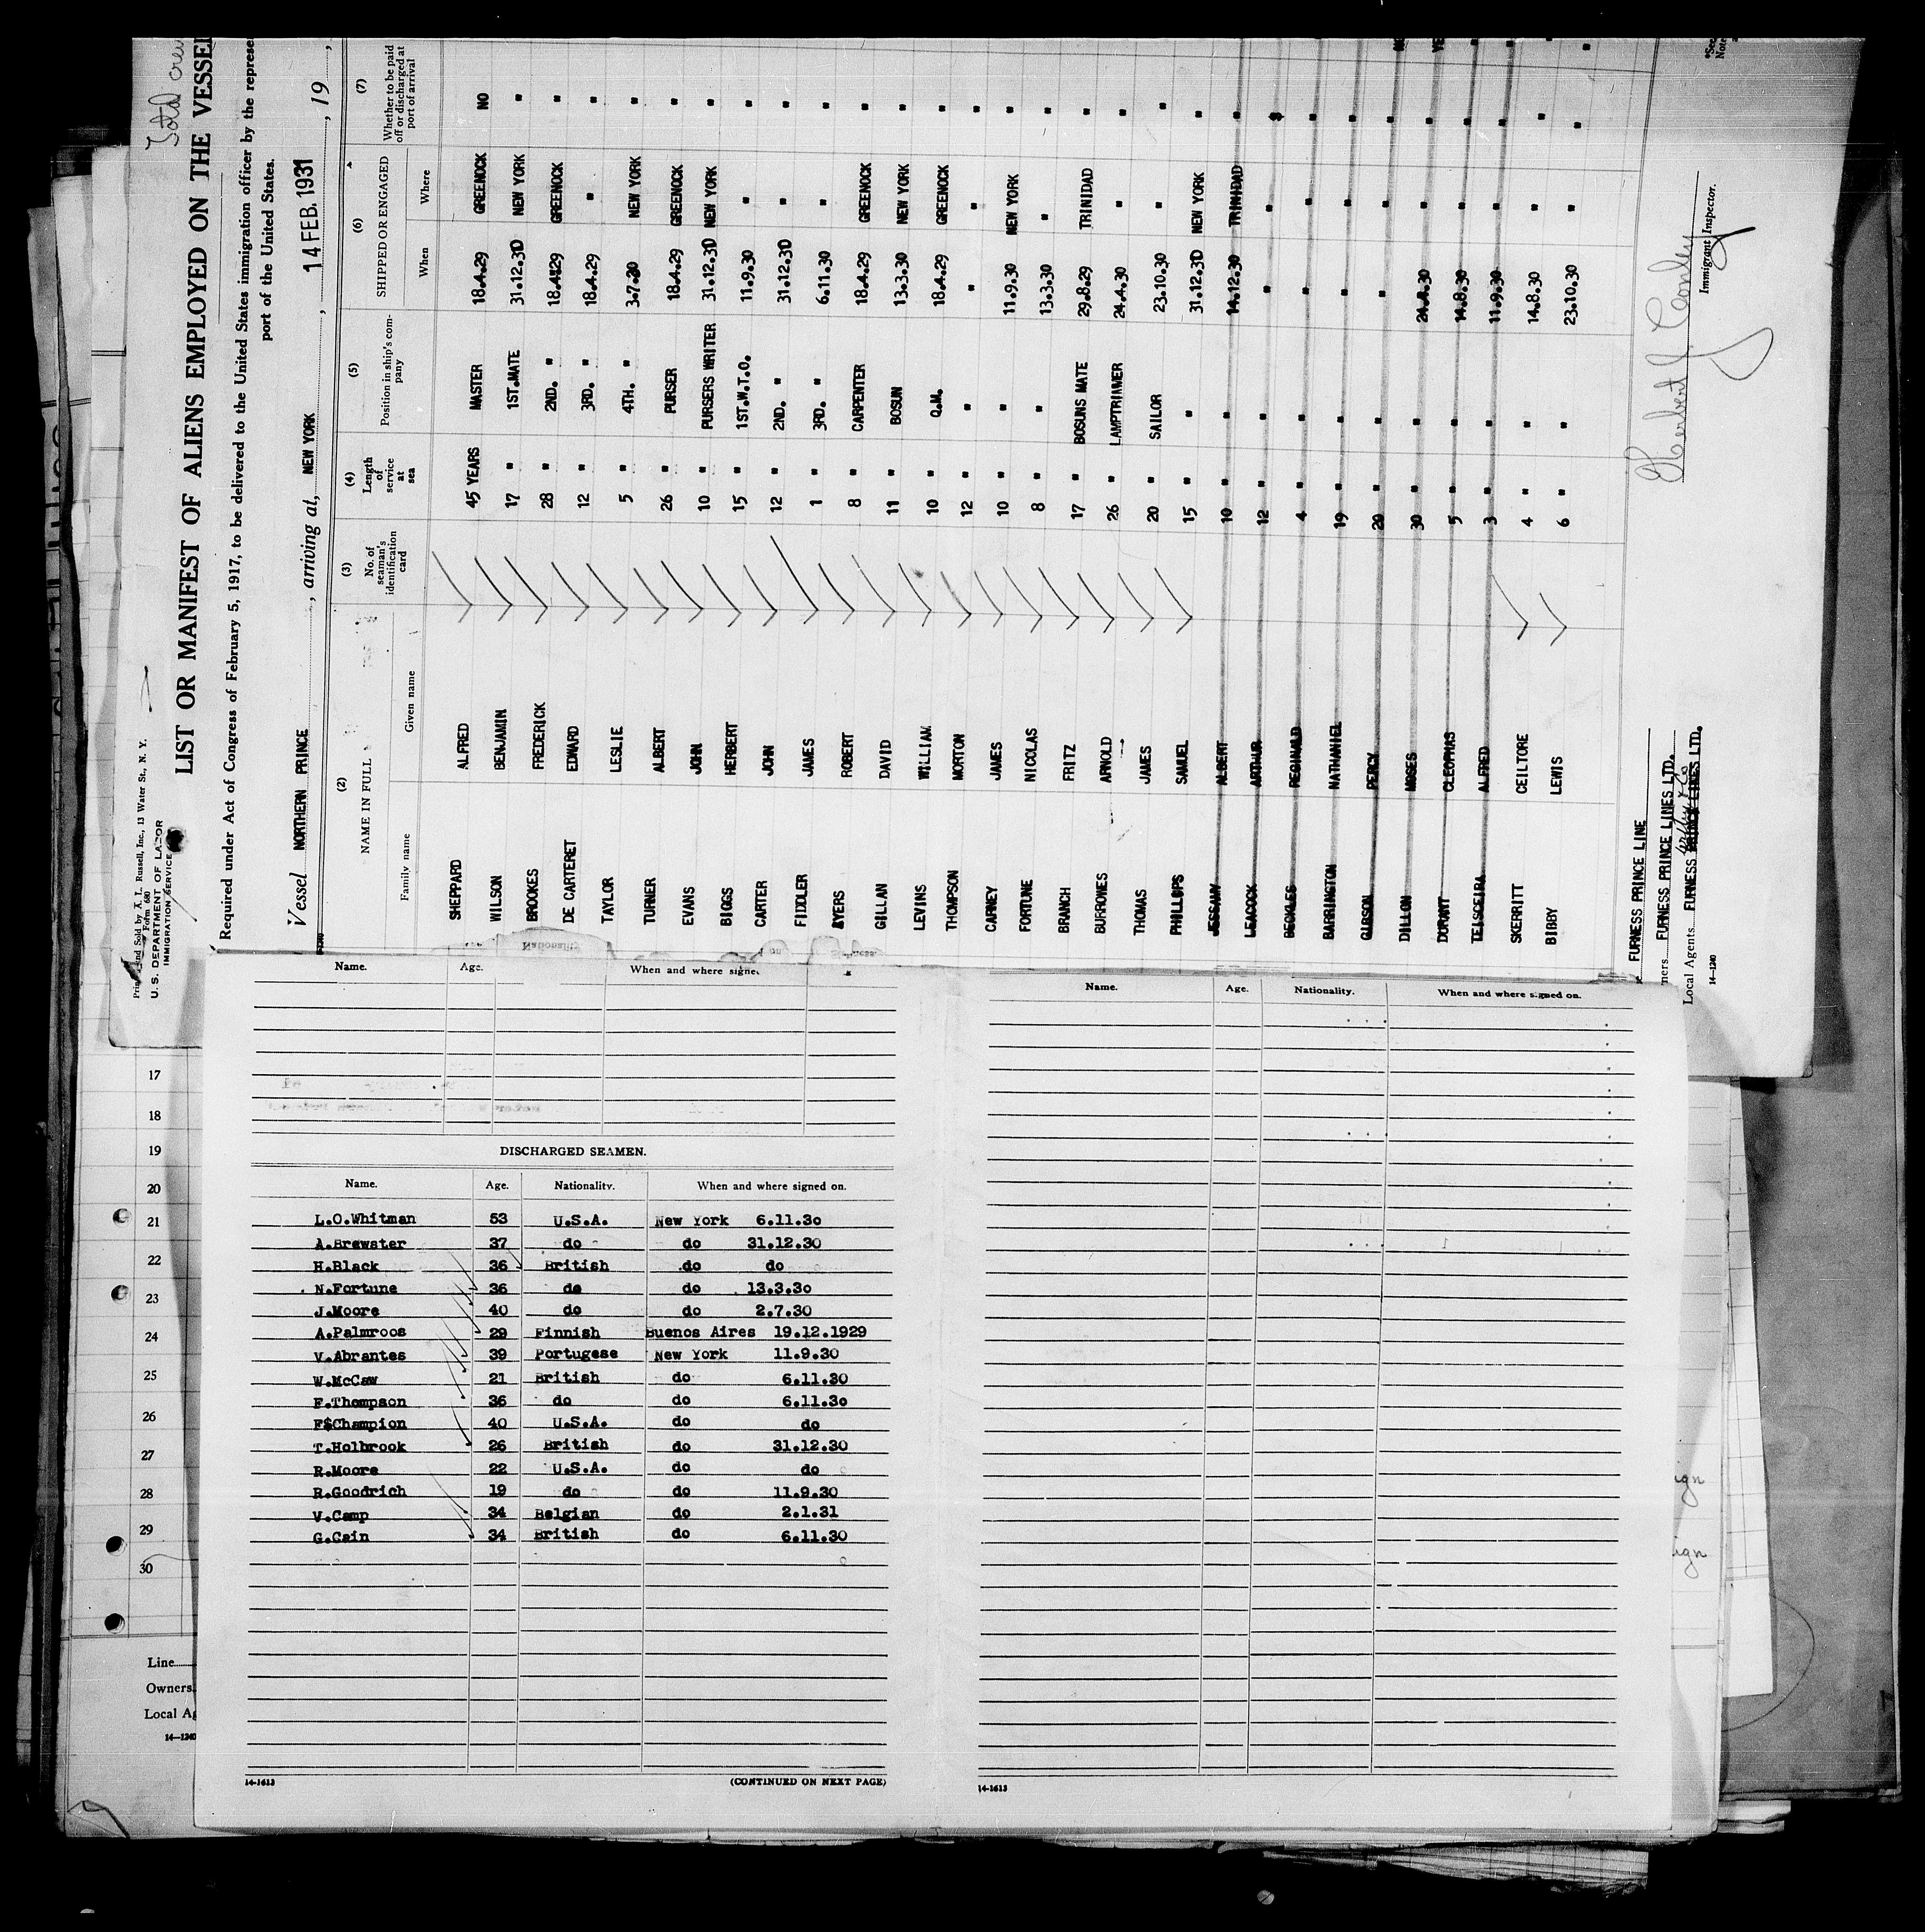 Total crew
Printed and Sold by A. L. Russell, Inc., 13 Water St., N. Y.
Form 680
U. S. DEPARTMENT OF LABOR
IMMIGRATION SERVICE
LIST OR MANIFEST OF ALIENS EMPLOYED ON THE VESSEL
Required under Act of Congress of February 5, 1917, to be delivered to the United States immigration officer by the represe
port of the United States.
Vessel NORTHERN PRINCE, arriving at, NEW YORK, 14 FEB. 1931, 19
(2) (3) (4) (5) (6) (7)
NAME IN FULL No. of seaman's identification card Length of service at sea Position in ship's company SHIPPED OR ENGAGED Whether to be paid off or discharged at port of arrival
Family name Given name When Where
SHEPPARD ALFRED 45 YEARS MASTER 18.4.29 GREENOCK NO
WILSON BENJAMIN 17 " 1ST.MATE 31.12.30 NEW YORK "
BROOKES FREDERICK 28 " 2ND. " 18.4.29 GREENOCK "
DE CARTERET EDWARD 12 " 3RD. " 18.4.29 " "
TAYLOR LESLIE 5 " 4TH. " 3.7.30 NEW YORK "
TURNER ALBERT 26 " PURSER 18.4.29 GREENOCK "
EVANS JOHN 10 " PURSERS WRITER 31.12.30 NEW YORK "
BIGGS HERBERT 15 " 1ST.W.T.O. 11.9.30 " "
CARTER JOHN 12 " 2ND. " 31.12.30 " "
FIDDLER JAMES 1 " 3RD. " 6.11.30 " "
AYERS ROBERT 8 " CARPENTER 18.4.29 GREENOCK "
GILLAN DAVID 11 " BOSUN 13.3.30 NEW YORK "
LEVINS WILLIAM 10 " Q.M. 18.4.29 GREENOCK "
THOMPSON MORTON 12 " " " " "
CARNEY JAMES 10 " " 11.9.30 NEW YORK "
FORTUNE NICOLAS 8 " " 13.3.30 " "
BRANCH FRITZ 17 " BOSUNS MATE 29.8.29 TRINIDAD "
BURROWES ARNOLD 26 " LAMPTRIMMER 24.4.30 " "
THOMAS JAMES 20 " SAILOR 23.10.30 " "
PHILLIPS SAMUEL 15 " " 31.12.30 NEW YORK "
JESSAMY ALBERT 10 " " 14.12.30 TRINIDAD "
LEACOCK ARTHUR 12 " " " " "
BECKLES REGINALD 4 " " " " "
BARRINGTON NATHANIEL 19 " " " " "
GIBSON PERCY 20 " " " " "
DILLON MOSES 30 " " 24.4.30 " "
DURANT CLEOPHAS 5 " " 14.8.30 " "
TEISCEIRA ALFRED 3 " " 11.9.30 " "
SKERRITT CEILTORE 4 " " 14.8.30 " "
BIBBY LEWIS 6 " " 23.10.30 " "
FURNESS PRINCE LINE
ners FURNESS PRINCE LINES LTD.
Local Agents FURNESS PRINCE LINES LTD.
14—1240
Herbert J. Conley
Immigrant Inspector.
*See
Note
Name. Age. When and where signe
Name. Age. Nationality. When and where signed on.
DISCHARGED SEAMEN.
Name. Age. Nationality. When and where signed on.
L.O.Whitman 53 U.S.A. New York 6.11.30
A.Brewster 37 do do 31.12.30
H.Black 36 British do do
N.Fortune 36 do do 13.3.30
J.Moore 40 do do 2.7.30
A.Palmroos 29 Finnish Buenos Aires 19.12.1929
V.Abrantes 39 Portugese New York 11.9.30
W.McCaw 21 British do 6.11.30
F.Thompson 36 do do 6.11.30
F$Champion 40 U.S.A. do do
T.Holbrook 26 British do 31.12.30
R.Moore 22 U.S.A. do do
R.Goodrich 19 do do 11.9.30
V.Camp 34 Belgian do 2.1.31
G.Cain 34 British do 6.11.30
14-1613 (CONTINUED ON NEXT PAGE)
14-1613
17
18
19
20
21
22
23
24
25
26
27
28
29
30
Line
Owners
Local Ag
14—1240
ign
ign